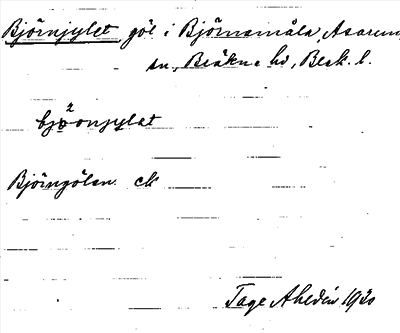 Björnjylet göl i Björnamåla, Asarum
sn., Bräkne hd, Blek. l.
bjö²onjylat
Björngölen ek
Tage Ahldén 1930